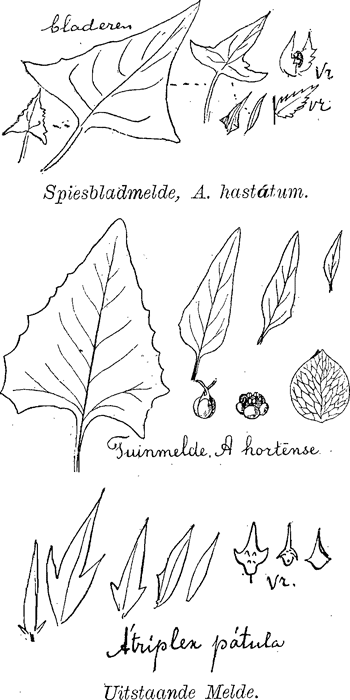 bladeren
Vr.
vr.
Spiesbladmelde, A. hastátum.
Tuinmelde. A hortēnse
Vr.
Átriplex pátula
Uitstaande Melde.